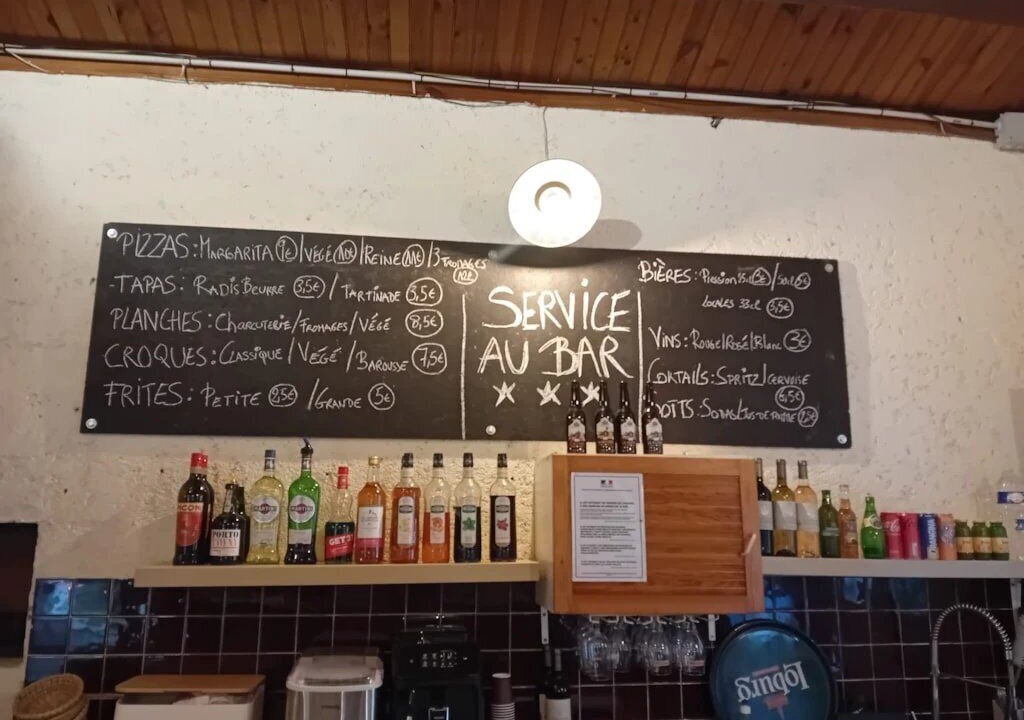 PIZZAS: MARGARITA 9€ / VÉGÉ 10€ / REINE 11€ / 3 FROMAGES 12€
TAPAS: RADIS BEURRE 3,5€ / TARTINADE 3,5€
PLANCHES: CHARCUTERIE / FROMAGES / VÉGÉ 8,5€
CROQUES: CLASSIQUE / VÉGÉ / BAROUSSE 7,5€
FRITES: PETITE 2,5€ / GRANDE 5€
SERVICE
AU BAR
BIÈRES: PRESSION 25cl 3€ / 50cl 6€
LOCALES 33cl 3,5€
VINS: ROUGE/ROSÉ/BLANC 3€
COKTAILS: SPRITZ/GERVOISE
6,5€
SOFTS: SODAS/JUS DE FRUITS 2,5€
PORTO
MARTINI
MARTINI
GET
Loburg